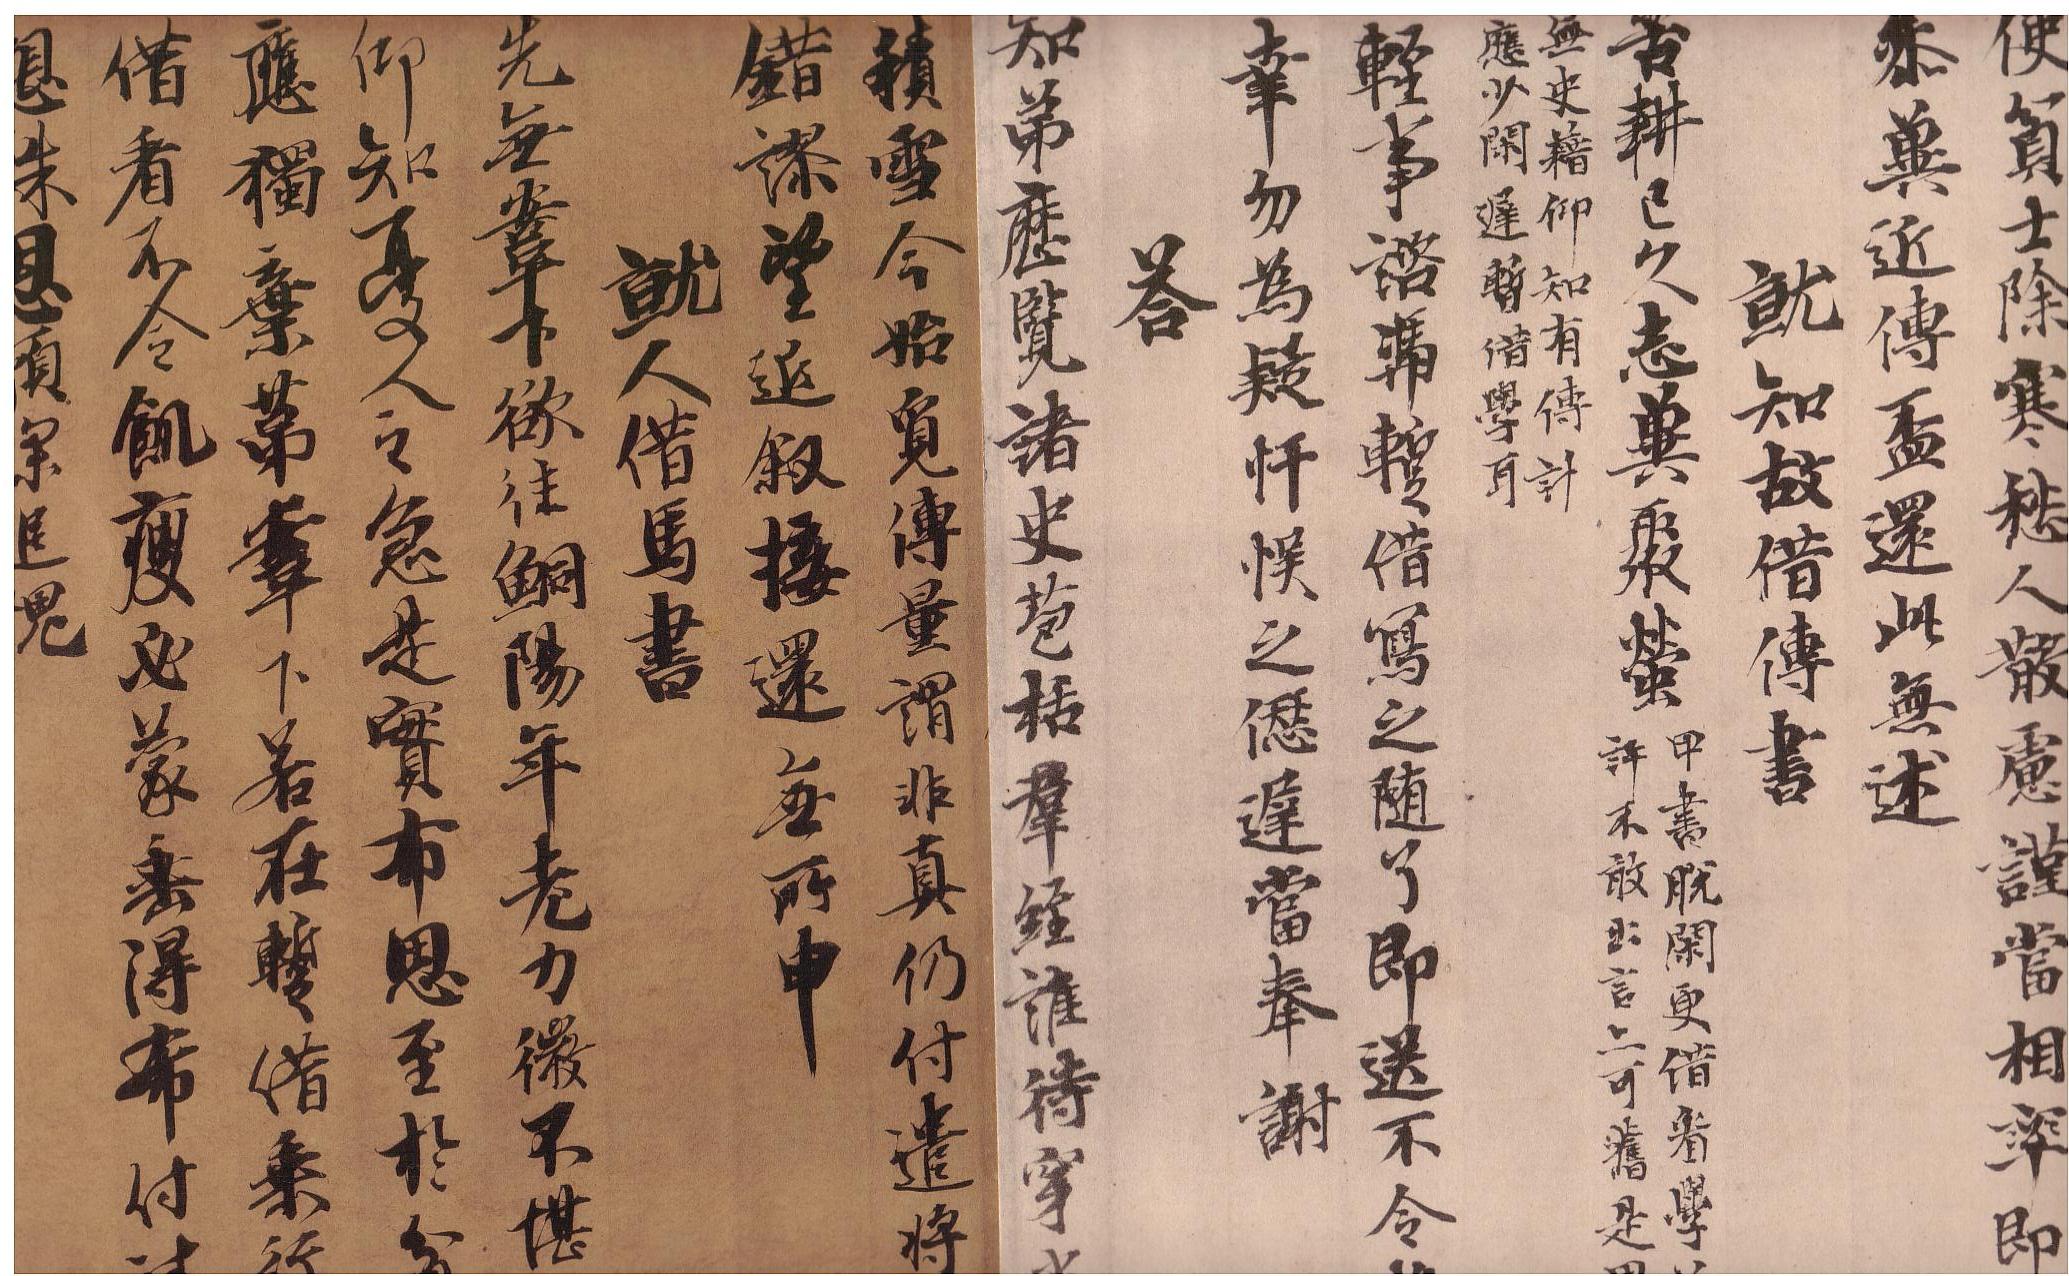 使貧士除寒愁人散慮謹當相率即
参冀近傳盃還此無述
就知故借傳書
苦耕已久志冀聚螢
甲書脱閑更借看學
許不敢出言上可舊是
無史藉仰知有傳計
應少閑遲暫借學耳
輕事諮 暫借寫之随了即送不令
幸勿為疑忓悮之愆遲當奉謝
答
知弟歷覽諸史苞括羣經誰待穿
積雪今始覓傳量謂非真仍付遣將
錯謬望近叙接還無所申
就人借馬書
先無葦卞欲往鮦陽年老力微不堪
仰知 人之急是實布恩至於
應獨棄弟 下若在暫借乘行
借看不令飢瘦必蒙垂得希付
恩朱恩須 追